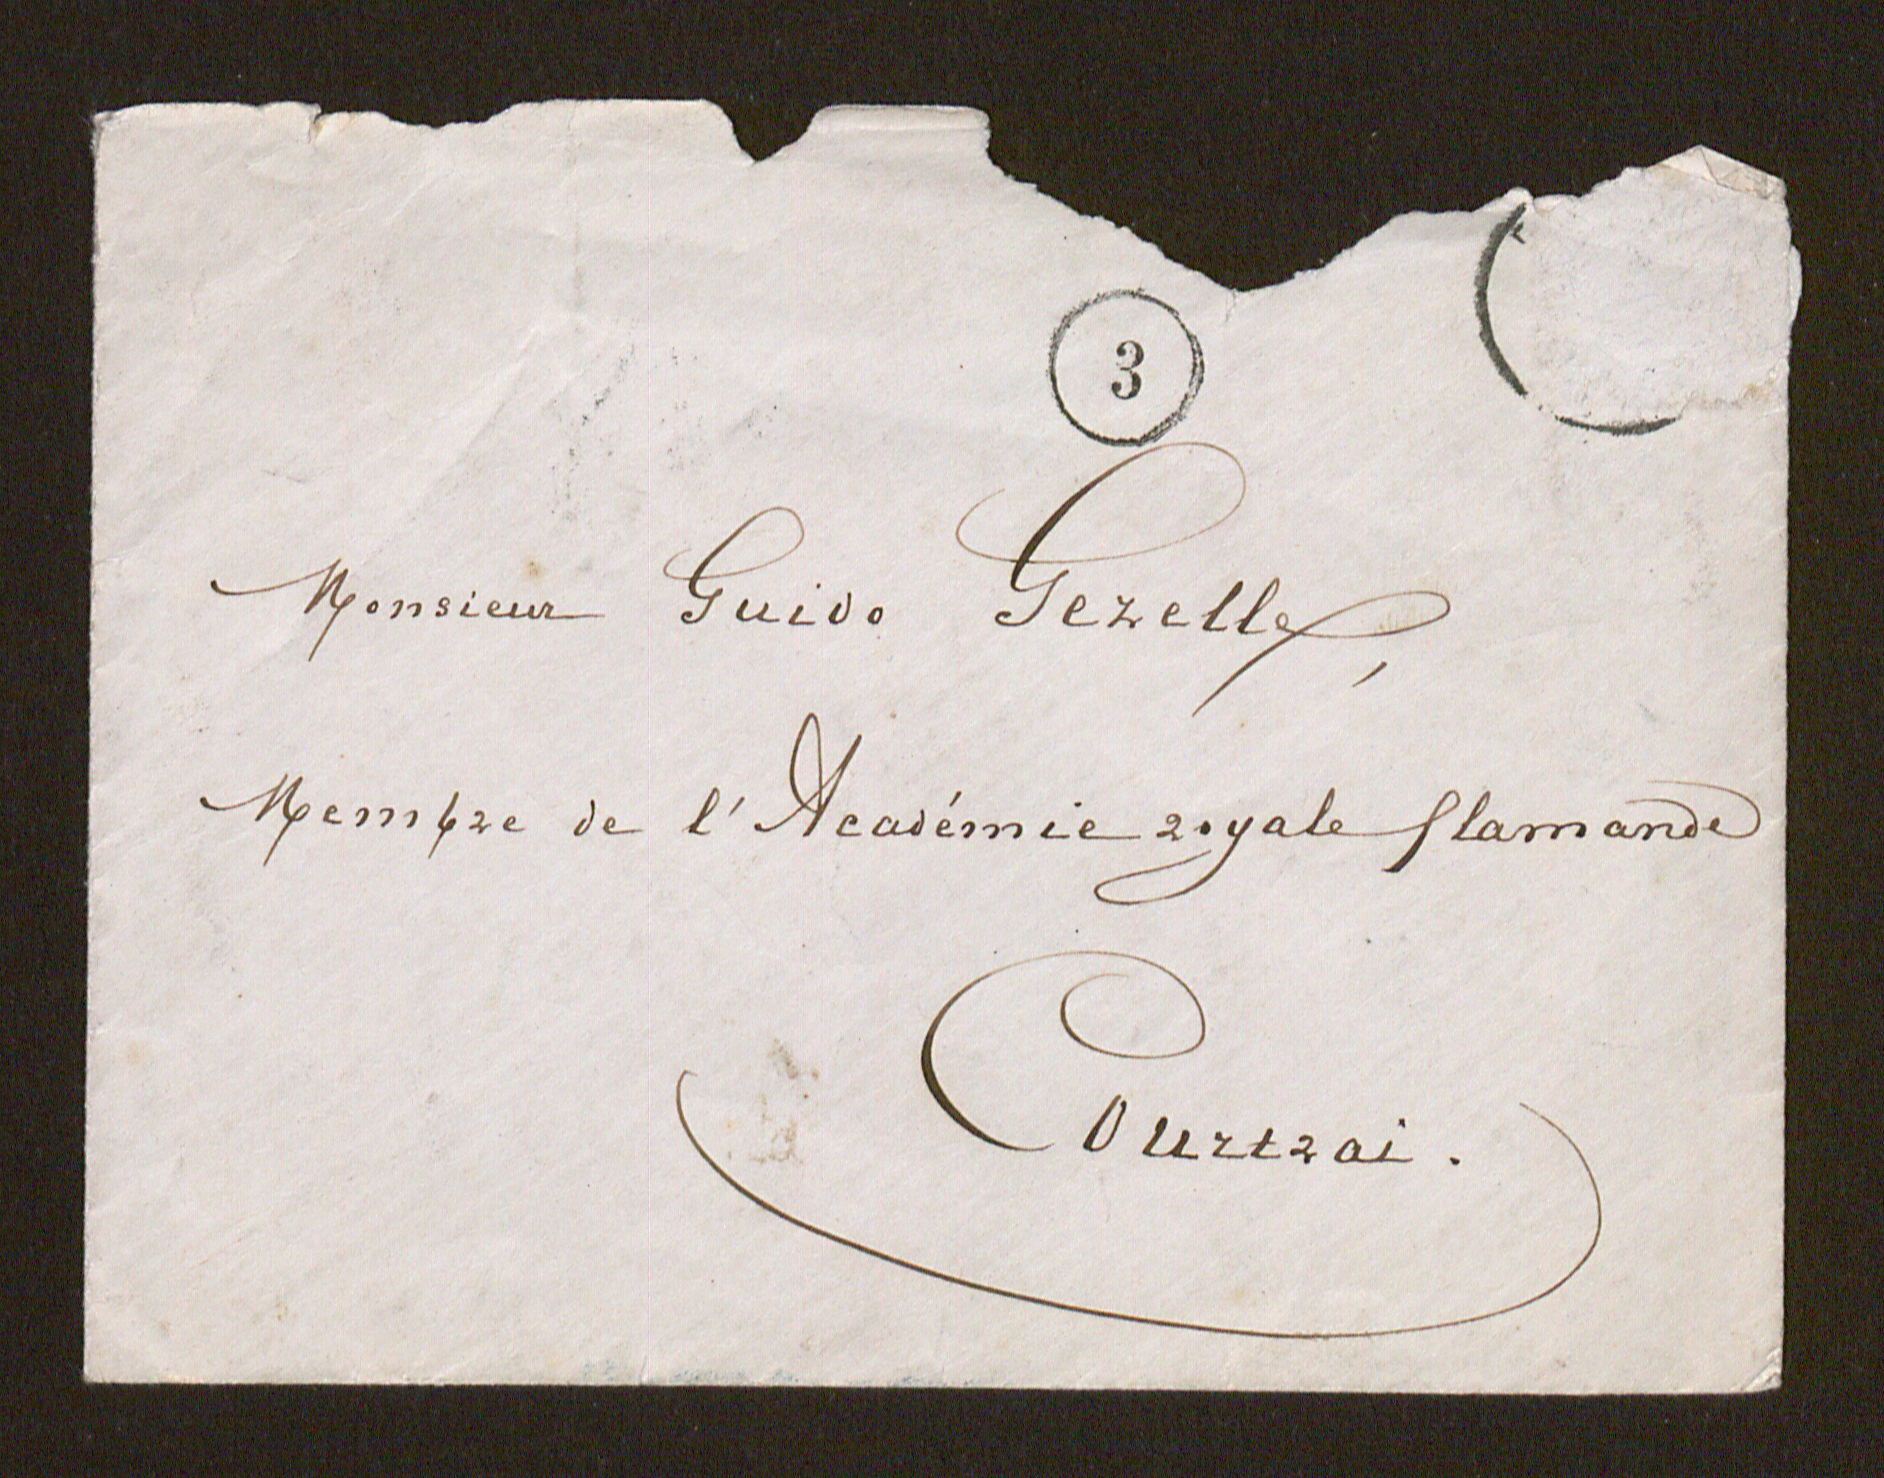 3
Monsieur Guido Gezelle,
Membre de l'Académie royale flamande
Courtrai.